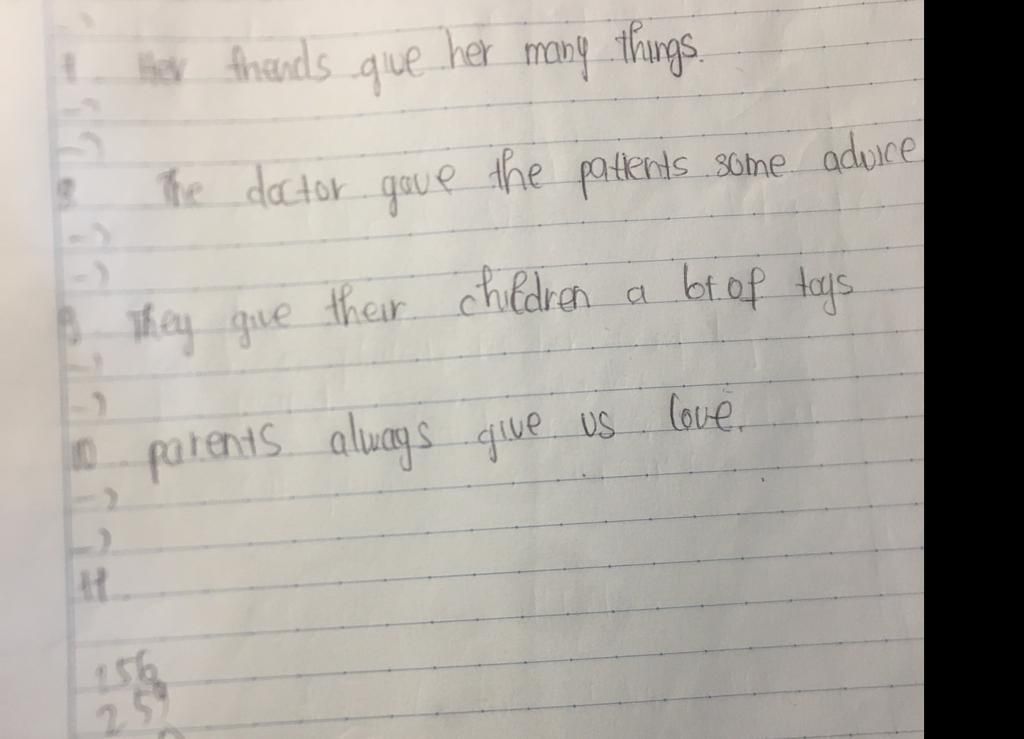 Her friends give her many things.
->
->
The doctor gave the patients some advice
->
->
They give their children a lot of toys
->
->
10 parents always give us love.
->
->
11
256
259